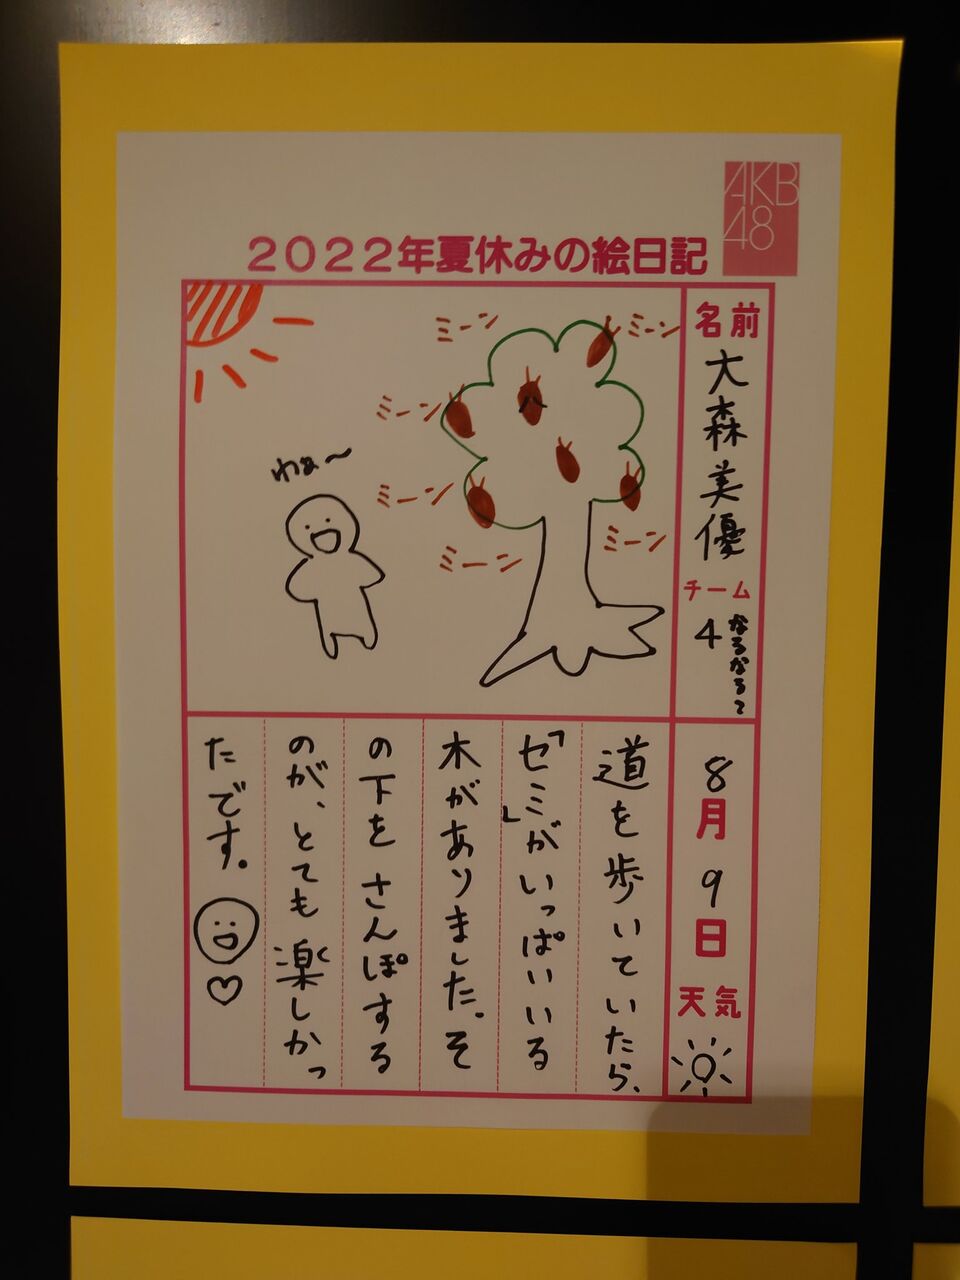 AKB
48
2022年夏休みの絵日記
名前
大森美優
チーム
4
なるなるて
8月9日
天気
ミーン
ミーン
ミーン
ミーン
ミーン
ミーン
わぁ〜
道を歩いていたら、
「セミ」がいっぱいいる
木がありました。そ
の下をさんぽする
のが、とても楽しかっ
たです。